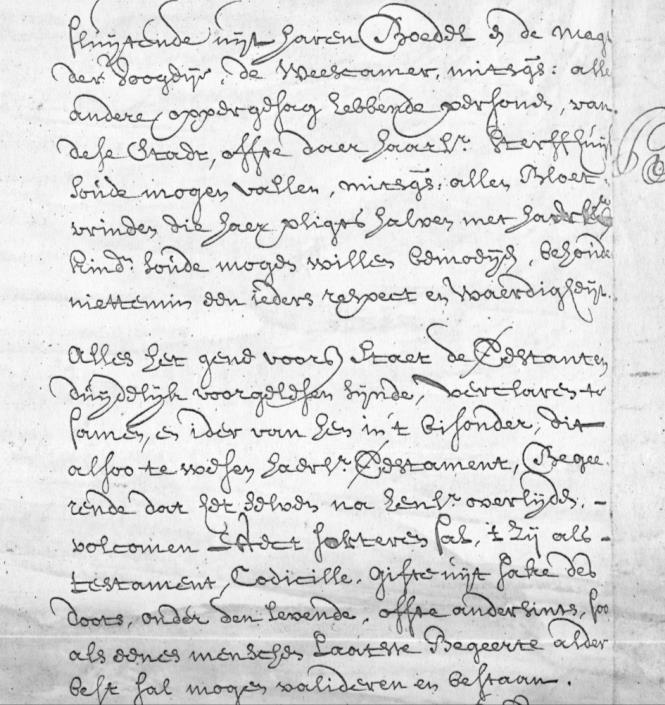 sluijtende uijt haren Boedel en de mag
der voogdije, de Weescamer, mitsgs: alle
andere oppergesag hebbende persoonen, van
dese Stadt, offte daer haarlr. Sterffhuijs
soude mogen vallen, mitsgs: allen Bloet
vrinden die haer pligts halven met haer
kindn. soude mogen willen bemoeijen, behoude
niettemin een ieders respect en waerdigheijt.
Alles het gene voorsz staet de Testanten
duijdelijk voorgelesen sijnde, verclaren te
samen, en ider van hen in 't bisonder, dit
alsoo te wesen haerlr. Testament, Begee
rende dat het selven na henlr. overlijden. -
volcomen Effect sorteren sal, 't zij als -
testament, Codicille. gifte uijt sake des
doots, onder den levende, offte andersints, soo
als eenes menschen Laatste Begeerte alder
best sal mogen valideren en bestaan.